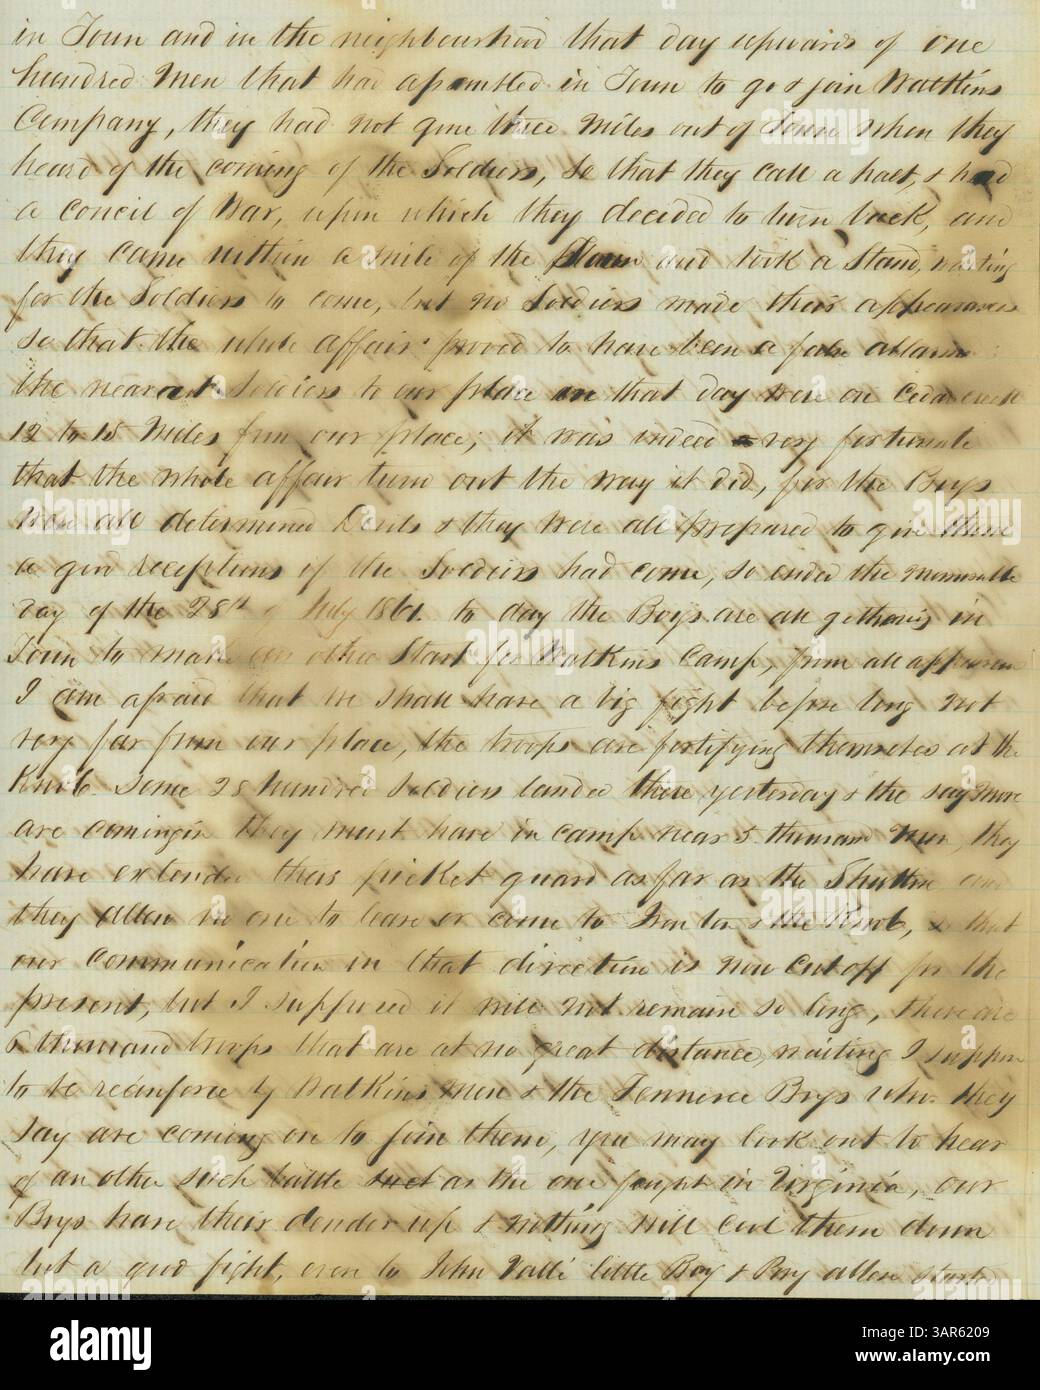 in Town and in the neighbourhood that day upwards of one
hundred Men that had assembled in Town to go & join Watkins
Company, they had not gone three Miles out of Town when they
heard of the coming of the Soldiers, so that they call a halt, & had
a Concil of War, upon which they decided to turn back, and
they came within a mile of the Town and took a Stand, waiting
for the Soldiers to come, but no Soldiers made their appearances
so that the whole affair proved to have been a false allarm
the nearest Soldiers to our place on that day were on Cedar creek
12 to 15 Miles from our place; it was indeed a very fortunate
that the whole affair turn out the way it did, for the Boys
were all determined Devils & they were all prepared to give them
a good receptions if the Soldiers had come, so ended the memorable
day of the 28th of July 1861. to day the Boys are all gethering in
Town to make an other Start for Watkins Camp, from all appearan
I am afraid that we shall have a big fight before long not
very far from our place, the troops are fortifying themselves at the
Knob. Some 28 hundred Soldiers landed there yesterday & the say more
are coming in they must have in camp near 5 thousand Men, they
have extended their picket guard as far as the Shutten and
they allow no one to leave or come to Ironton & the Knob, so that
our communication in that direction is now cut off for the
present, but I supposed it will not remain so long, there are
6 thousand troops that are at no great distance, waiting I suppose
to be reinforce by Watkins Men & the Tennesee Boys who they
say are coming on to join them, you may look out to hear
of an other such battle as the one fought in Virginia, our
Boys have their dander up & nothing will cool them down
but a good fight, even to John Valle little Boy & Roy allen started
alamy
Image ID: 3AR6209
www.alamy.com